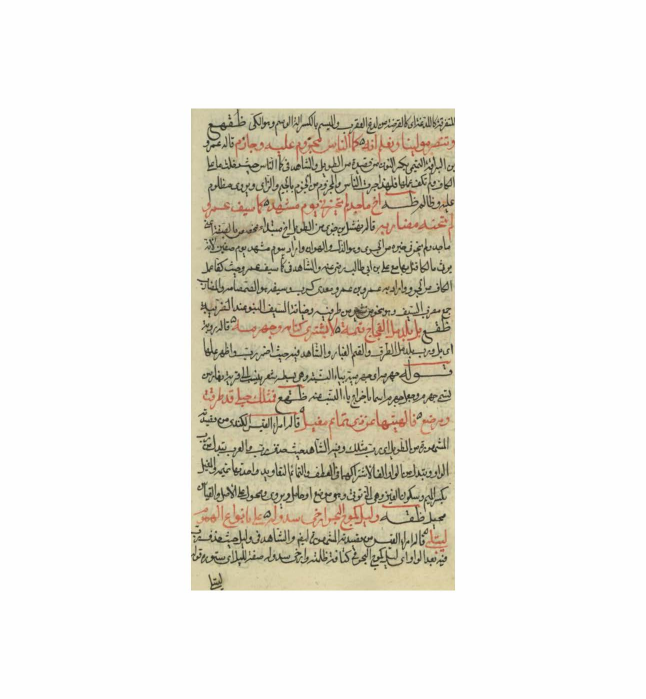 كاللذعة اى كالقرضة من لدغ العقرب والميسم بالكسر آلة الوسم وهو الكى ظقهع
وننصر مولانا ونعلم انه كما الناس مجروم عليه وجارم قاله عمرو
بن البراقة النهمى بكسر النون من قصيدة من الطويل والشاهد فى كما الناس حيث دخلت ما على
الكاف ولم تكف عملها فلهذا جرت الناس والمجروم من الجرم بالجيم والراى ويروى مظلوم
عليه وظالم ظه اخ ماجد لم يخزنى يوم مشهد كما سيف عمرو
لم تخنه مضاربه قاله نهشل بن حرى من الطويل اخ مبتدأ
ماجد ولم يخزنى خبره من اخزى وهو الذل والهوان واراد بيوم مشهد يوم صفين لانه
يرثى مالكا قتل بها مع على بن ابى طالب رضى عنه والشاهد فى كما سيف عمرو حيث كفت ما
الكاف من الجر واراد به عمرو بن معدى كرب وسيفه هو الصمصامة والمضارب
جمع مضرب السيف وهو نحو من شبر من طرفه وخيانة السيف النبو عند الضريبة
ظقع بل بلد ملء الفجاج قتمه لا يشترى كتانه وجهرمه قاله روبة
اى بل رب بلد ملء الطرق والقتم الغبار والشاهد فيه حيث اضمر رب واظهر عملها
قوله جهرمه اى جهرميه بياء النسبة وهى بسط شعر ينسب الى قرية بفارس
تسمى جهرم باخراج ياء النسب منه ظقهع فمثلك حبلى قد طرقت
ومرضع فالهيتها عن ذى تمايم مغيل قاله امرؤ القيس الكندى من قصيدته
المشهورة من الطويل اى رب مثلك وفيه الشاهد حيث حذف رب
والتمائم التعاويذ واحدتها تميمة والمغيل
بكسر الياء وسكون الغين وهى ويروى محول على الاصل والقياس
محيل ظقه وليل كموج البحر ارخى سدوله على بانواع الهموم
ليبتلى قاله امرؤ القيس من قصيدته المشهورة والشاهد فى وليل حيث حذف رب
فيه بعد الواو اى ليل كموج البحر فى كثافة ظلمته وارخى سدوله صفة لليل اى ستوره قوله
ليبتلى